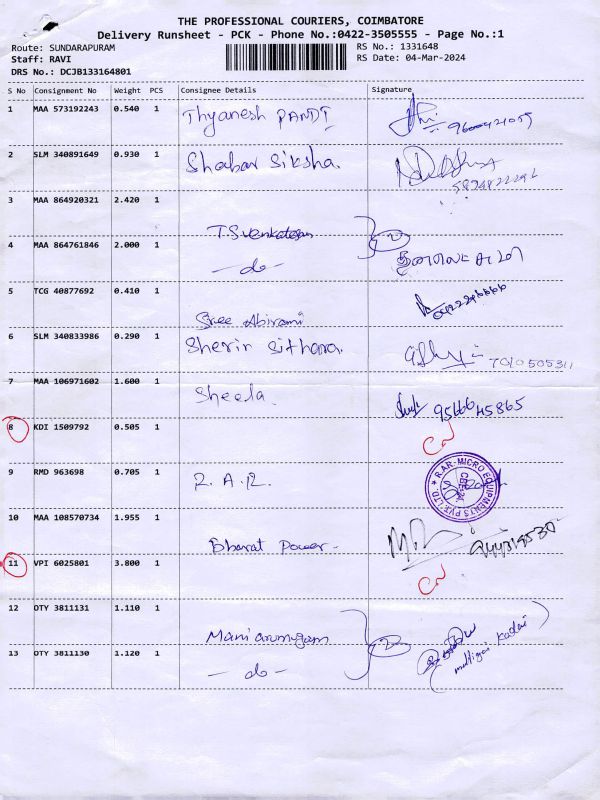 THE PROFESSIONAL COURIERS, COIMBATORE
Delivery Runsheet - PCK - Phone No.:0422-3505555 - Page No.:1
Route: SUNDARAPURAM
RS No.: 1331648
Staff: RAVI
RS Date: 04-Mar-2024
DRS No.: DCJB133164801
S No Consignment No Weight PCS Consignee Details Signature
1 MAA 573192243 0.540 1 Thyanesh PANDI
2 SLM 340891649 0.930 1 Shabar Siksha.
3 MAA 864920321 2.420 1 T.S Venkatesan
4 MAA 864761846 2.000 1 - do -
5 TCG 40877692 0.410 1 Sree Abirami
6 SLM 340833986 0.290 1 Sherin Sithara. 7010505311
7 MAA 106971602 1.600 1 Sheela. 9566645865
8 KDI 1509792 0.505 1
9 RMD 963698 0.705 1 R.A.R.
R.A.R. MICRO EQUIPMENTS PVT. LTD
10 MAA 108570734 1.955 1 Bharat Power -
11 VPI 6025801 3.800 1
12 OTY 3811131 1.110 1 Mani arumugam
13 OTY 3811130 1.120 1 - do -